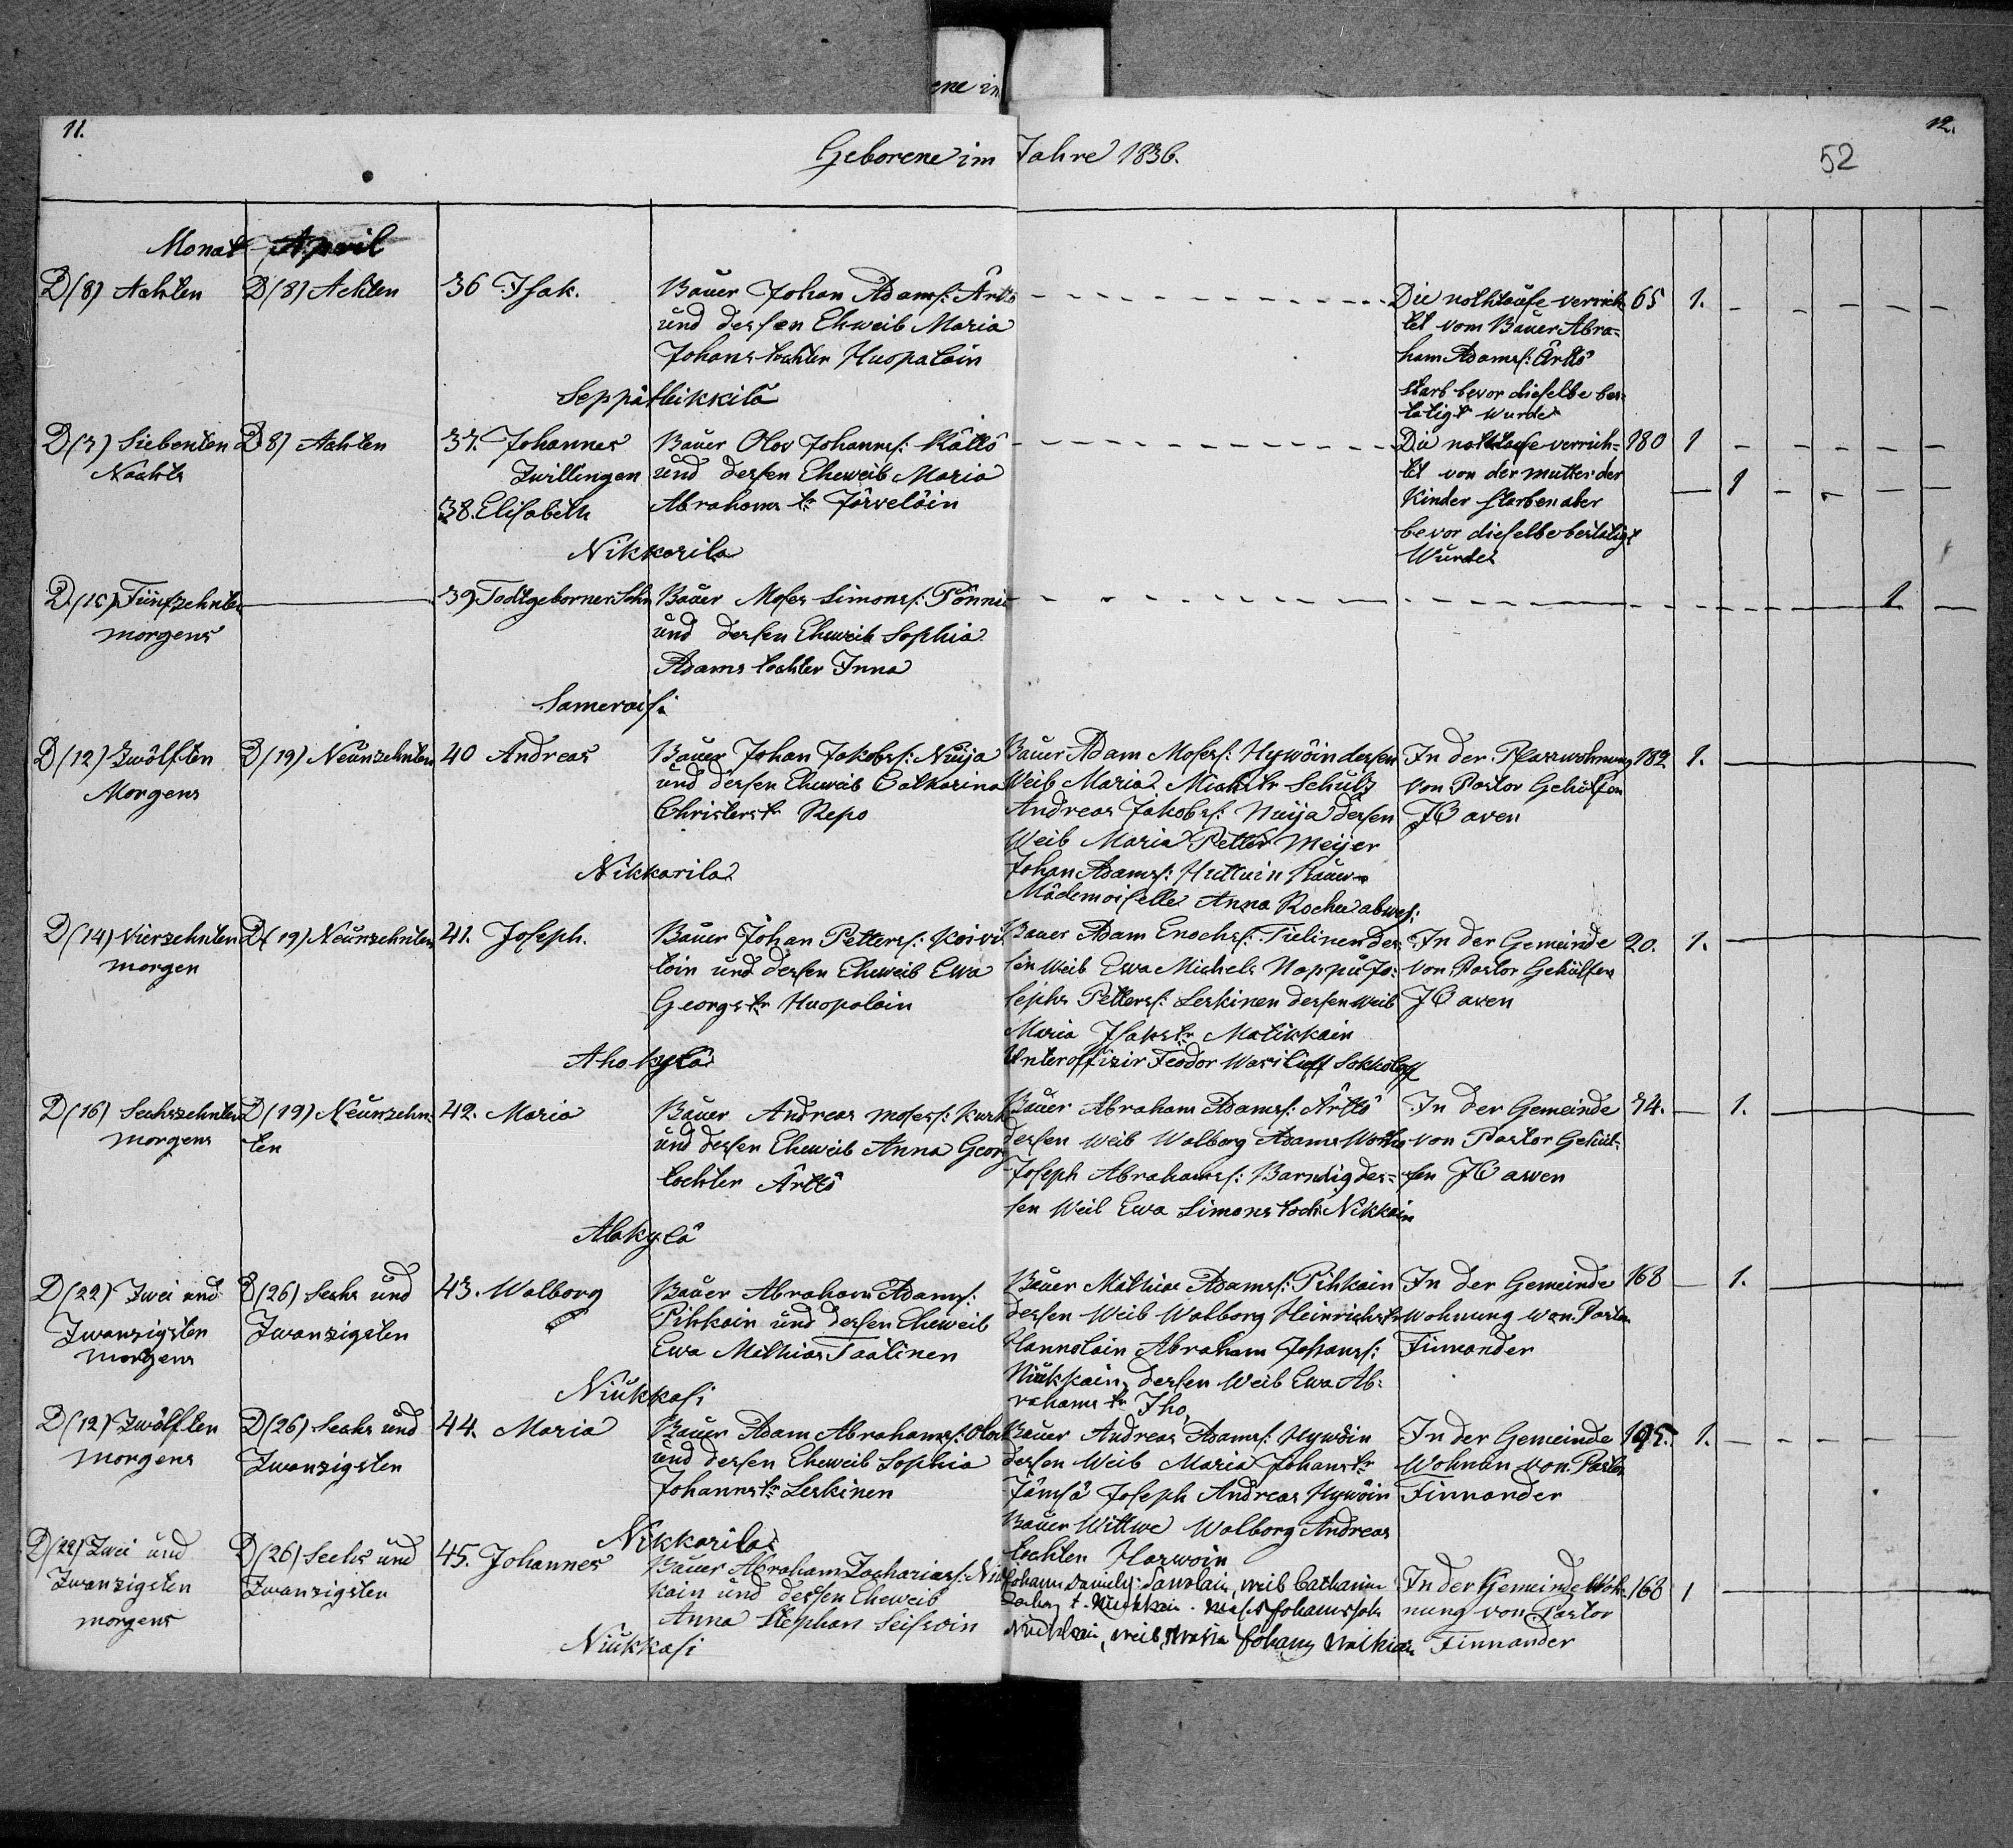 ene in
11.
12.
Geborene im Jahre 1836.
52
Monat April
D (8) Achten
D (8) Achten
36 Isak.
Bauer Johan Adams: Ärtö
und dessen Eheweib Maria
Johans tochter Huopalain
Seppä Heikkilä
Die nothtaufe verrich
tet vom Bauer Abra=
ham Adams: Ärttö
starb bevor dieselbe bes=
tätigt wurde
65
1.
D (7) Siebenten
Nachts
D 8) Achten
37. Johannes
Zwillingen
38. Elisabeth
Bauer Olov Johanns: Kättö
und dessen Eheweib Maria
Abrahams tr Järveläin
Nikkarila
Die nothtaufe verrich=
tet von der mutter der
Kinder starben aber
bevor dieselbe bestätigt
Wurde
180
1
1
D. (15) Fünfzehnten
morgens
39 Todtgeborner Sohn
Bauer Moses Simons: Pönni
und dessen Eheweib Sophia
Adams tochter Inna
Sameroisi
1
D (12) Zwölften
Morgens
D (19) Neunzehnten
40 Andreas
Bauer Johan Jakobs: Nuija
und dessen Eheweib Catharina
Christers tr Repo
Nikkarila
Bauer Adam Moses: Hywöin dessen
Weib Maria Mich tr Schulz
Andreas Jakobs: Nuija dessen
Weib Maria Petter Meijer
Johan Adams: Huttuin Bauer
Mademoiselle Anna Rochee abwes:
In der Pfarrwohnung
von Pastor Gehülfen
182.
1.
D (14) Vierzehnten
morgen
D (19) Neunzehnten
41. Joseph.
Bauer Johan Petters: Koivi
loin und dessen Eheweib Ewa
Georgs tr Huopolain
Ahokylä
Bauer Adam Enochs: Tielinen des
sen Weib Ewa Michels Nappu Jo=
sephs Petters: Leskinen dessen Weib
Maria Isaks tr Matikkain
Unteroffizir Feodor Wasilieff Sokkoloff
In der Gemeinde
von Pastor Gehülfen
20.
1.
D (16) Sechszehnten
morgens
D (19) Neunzehn=
ten
42. Maria
Bauer Andreas Moses: Kurk
und dessen Eheweib Anna Georg
tochter Ärttö
Alakylä
Bauer Abraham Adams: Ärttö
dessen Weib Walborg Adams
Joseph Abrahams: Barndig des=
sen Weib Ewa Simons toch: Nikkain
In der Gemeinde
von Pastor Gehül=
fen
74.
1.
D (22) Zwei und
Zwanzigsten
morgens
D (26) Sechs und
Zwanzigsten
43. Walborg
Bauer Abraham Adams:
Pihkain und dessen Eheweib
Ewa Mathias Taalinen
Niukkasi
Bauer Mathias Adams: Pihkain
dessen Weib Walborg Heinrichs tr
Hannolain Abraham Johans:
Niukkain, dessen Weib Ewa Ab=
rahams tr Iho,
In der Gemeinde
wohnung von Pastor
Finnander
168
1.
D (12) Zwölften
morgens
D (26) Sechs und
Zwanzigsten
44. Maria
Bauer Adam Abrahams:
und dessen Eheweib Sophia
Johanns tr Leskinen
Nikkarila
Bauer Andreas Adams: Hywöin
dessen Weib Maria Johans tr
Jämsä Joseph Andreas Hywöin
Bauer Wittwe Walborg Andreas
tochter Harwoin
In der Gemeinde
Wohnun von Pastor
Finnander
195.
1.
D (22) Zwei und
Zwanzigsten
morgens
D (26) Sechs und
Zwanzigsten
45. Johannes
Bauer Abraham Zacharias: Niu
kain und dessen Eheweib
Anna Stephan Seiswin
Niukkasi
Johann Daniels: weib Catharina
Johanssohn
weib, Maria Johans
In der Gemeinde Woh=
nung von Pastor
Finnander
168
1